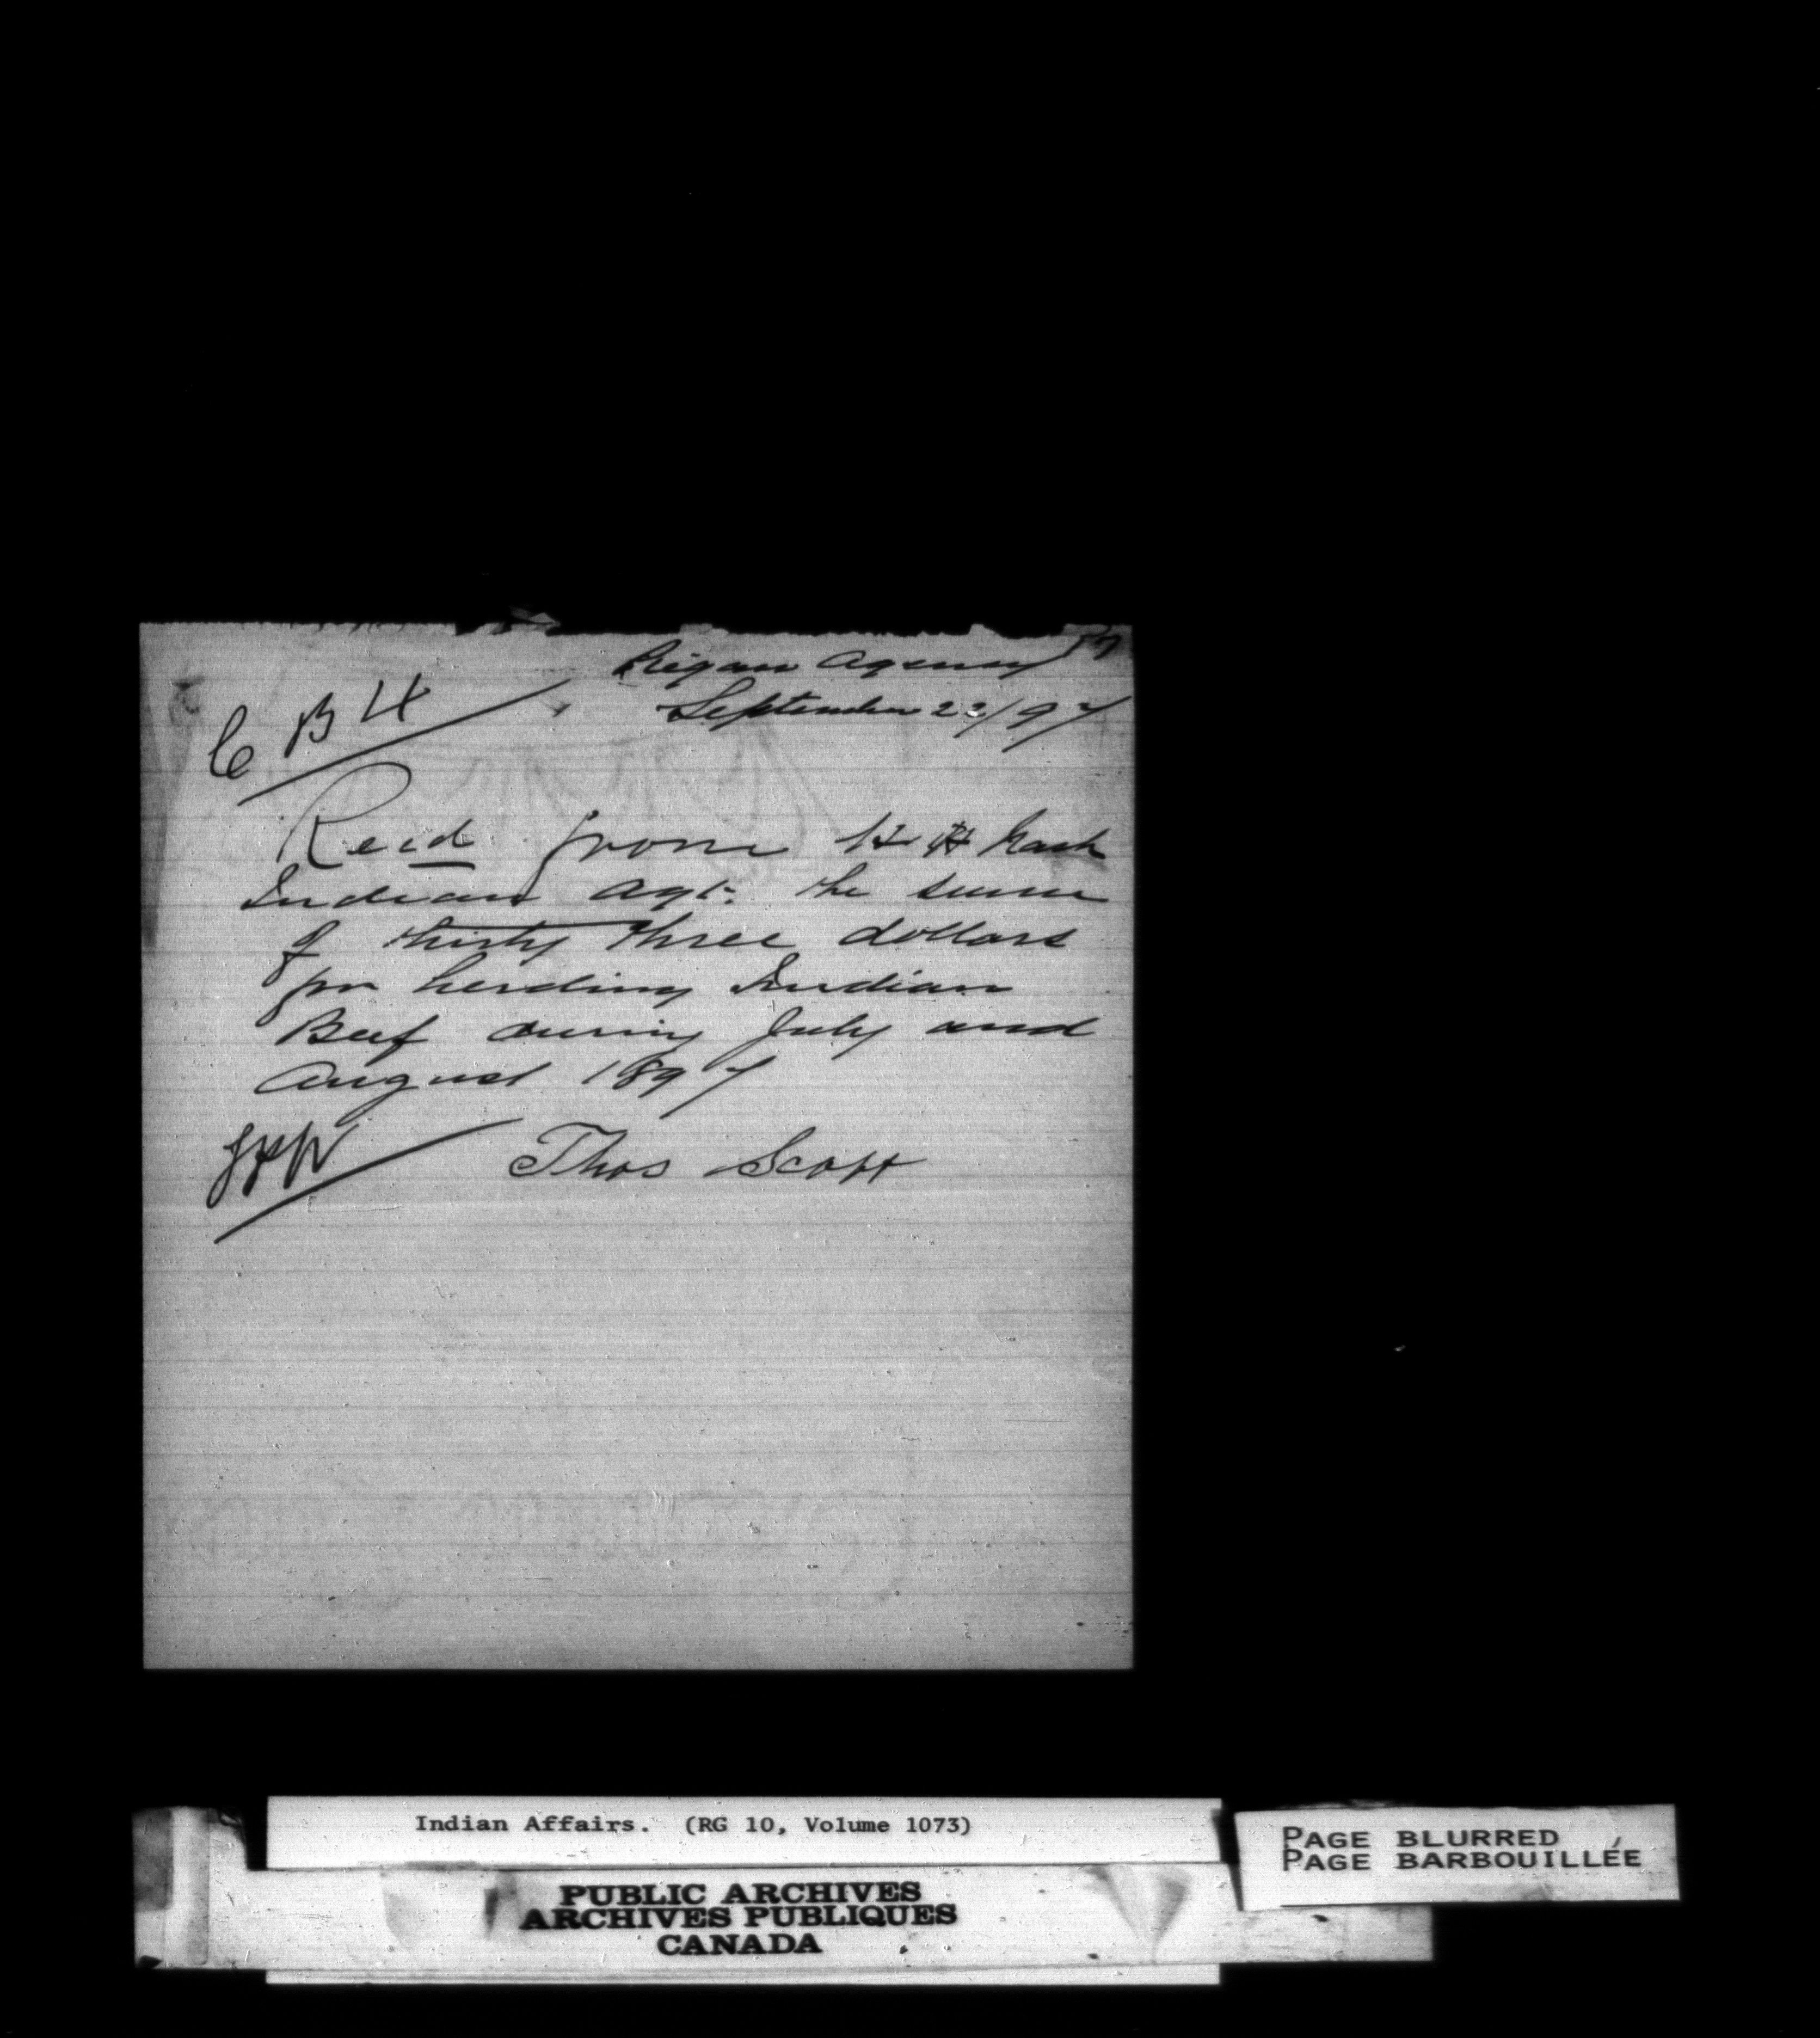 57
Peigan Agency
September 22/97
C B H
Recd from H H Nash
Indian Agt. the sum
of thirty three dollars
for herding Indian
Beef during July and
August 1897
Thos Scott
Indian Affairs. (RG 10, Volume 1073)
PAGE BLURRED
PAGE BARBOUILLÉE
PUBLIC ARCHIVES
ARCHIVES PUBLIQUES
CANADA